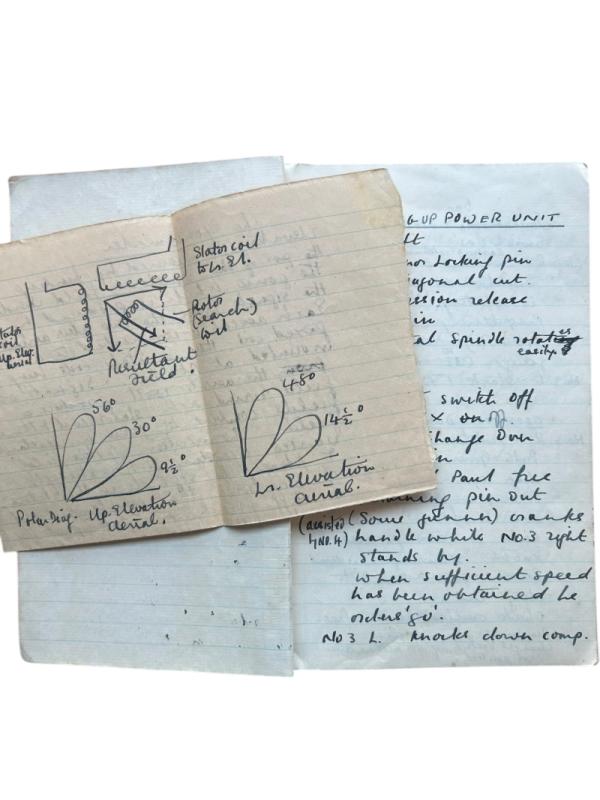 Stator coil
to Lr. El.
Stator
coil
Up. Elev.
aerial
Rotor
(search)
coil
Resultant
Field.
56°
30°
9½°
Polar Diag. Up. Elevation
aerial.
48°
14½°
Lr. Elevation
aerial.
G UP POWER UNIT
ht
nor Locking pin
iagonal cut.
ession release
in
al spindle rotates
easily.
switch off
x on off.
hange Over
in
Paul free
ining pin out
(assisted (Some gunner) cranks
by No.4) handle while No.3 right
stands by.
when sufficient speed
has been obtained he
orders 'go'.
No 3 L. knocks down comp.